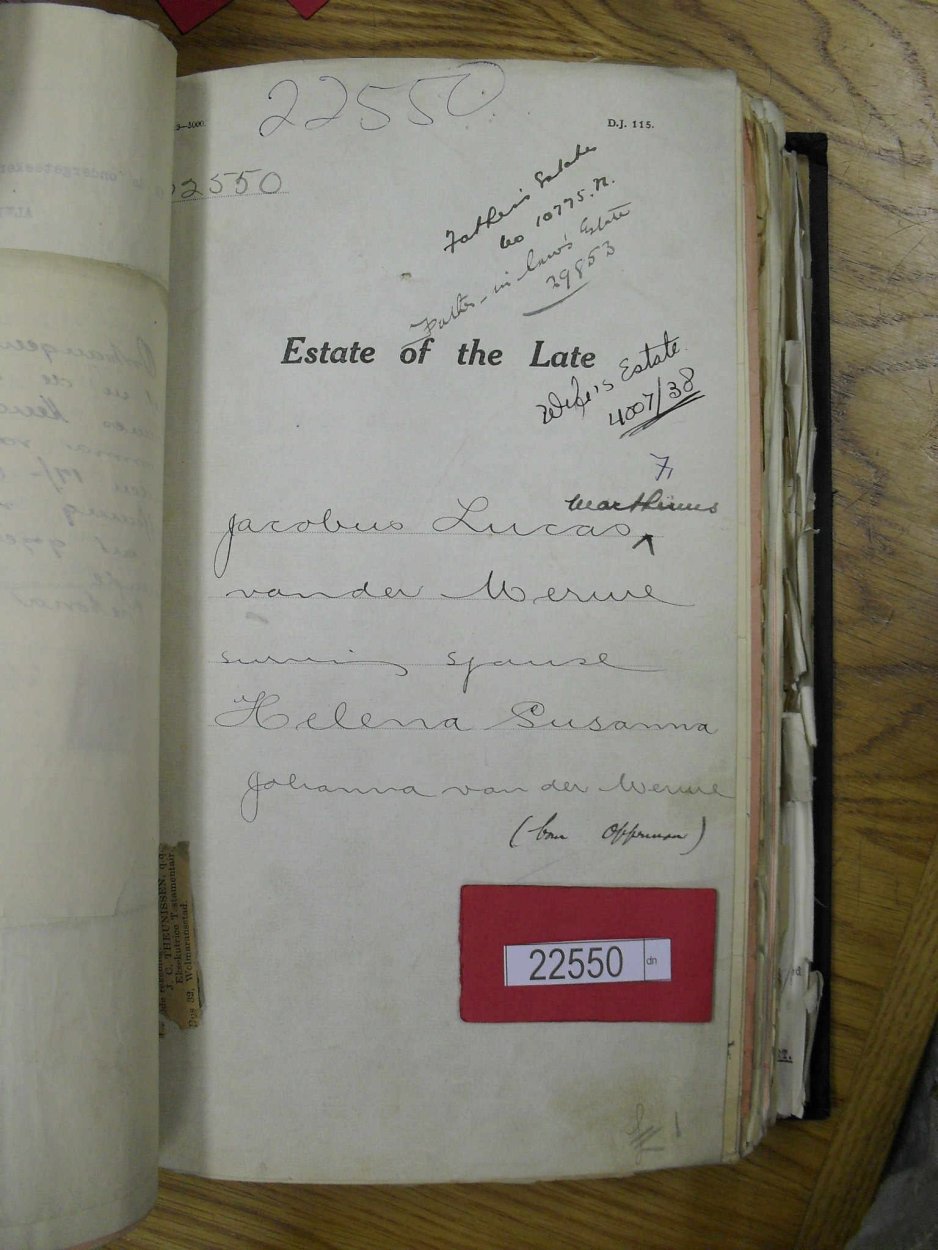 22550
D.J. 115.
22550
Father's Estate
No 10775.N.
Father-in-law's Estate
29853
Estate of the Late
Wife's Estate
4007/38
Marthinus
Jacobus Lucas ^
van der Merwe
surviving spouse
Helena Susanna
Johanna van der Merwe
(born Opperman)
22550 dn
J. C. THEUNISSEN, q.q.
Eksekutrice Testamentair
Bus 32, Wolmaransstad.